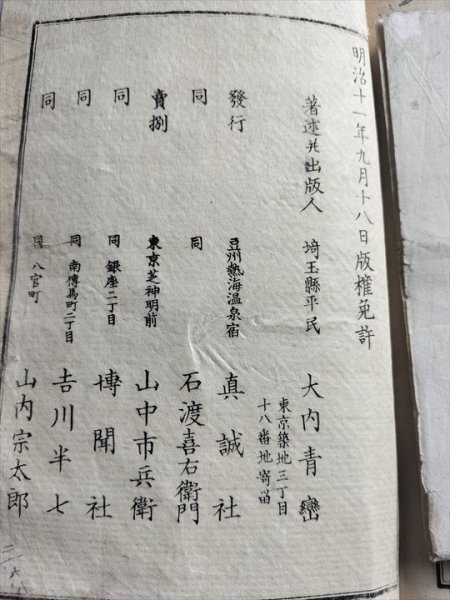 明治十一年九月十八日版權免許
著述并出版人 埼玉縣平民 大内青巒
東京築地三丁目
十八番地寄留
發行 豆州熱海温泉宿 真誠社
同 同 石渡喜右衛門
賣捌 東京芝神明前 山中市兵衛
同 同銀座二丁目 博聞社
同 同南傳馬町二丁目 吉川半七
同 同八官町 山内宗太郎